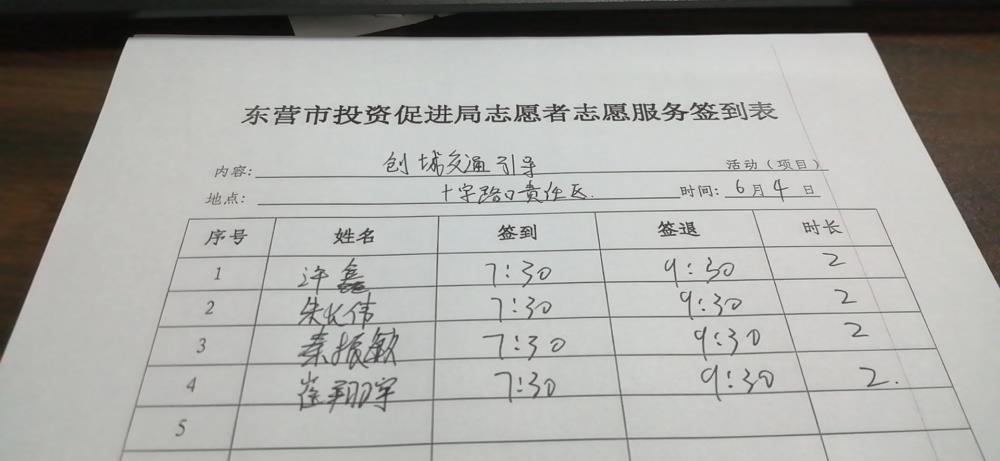 东营市投资促进局志愿者志愿服务签到表
内容: 创城交通引导 活动（项目）
地点: 十字路口责任区. 时间: 6月4日
序号 姓名 签到 签退 时长
1 许鑫 7:30 9:30 2
2 朱长伟 7:30 9:30 2
3 秦振敏 7:30 9:30 2
4 崔翔宇 7:30 9:30 2.
5